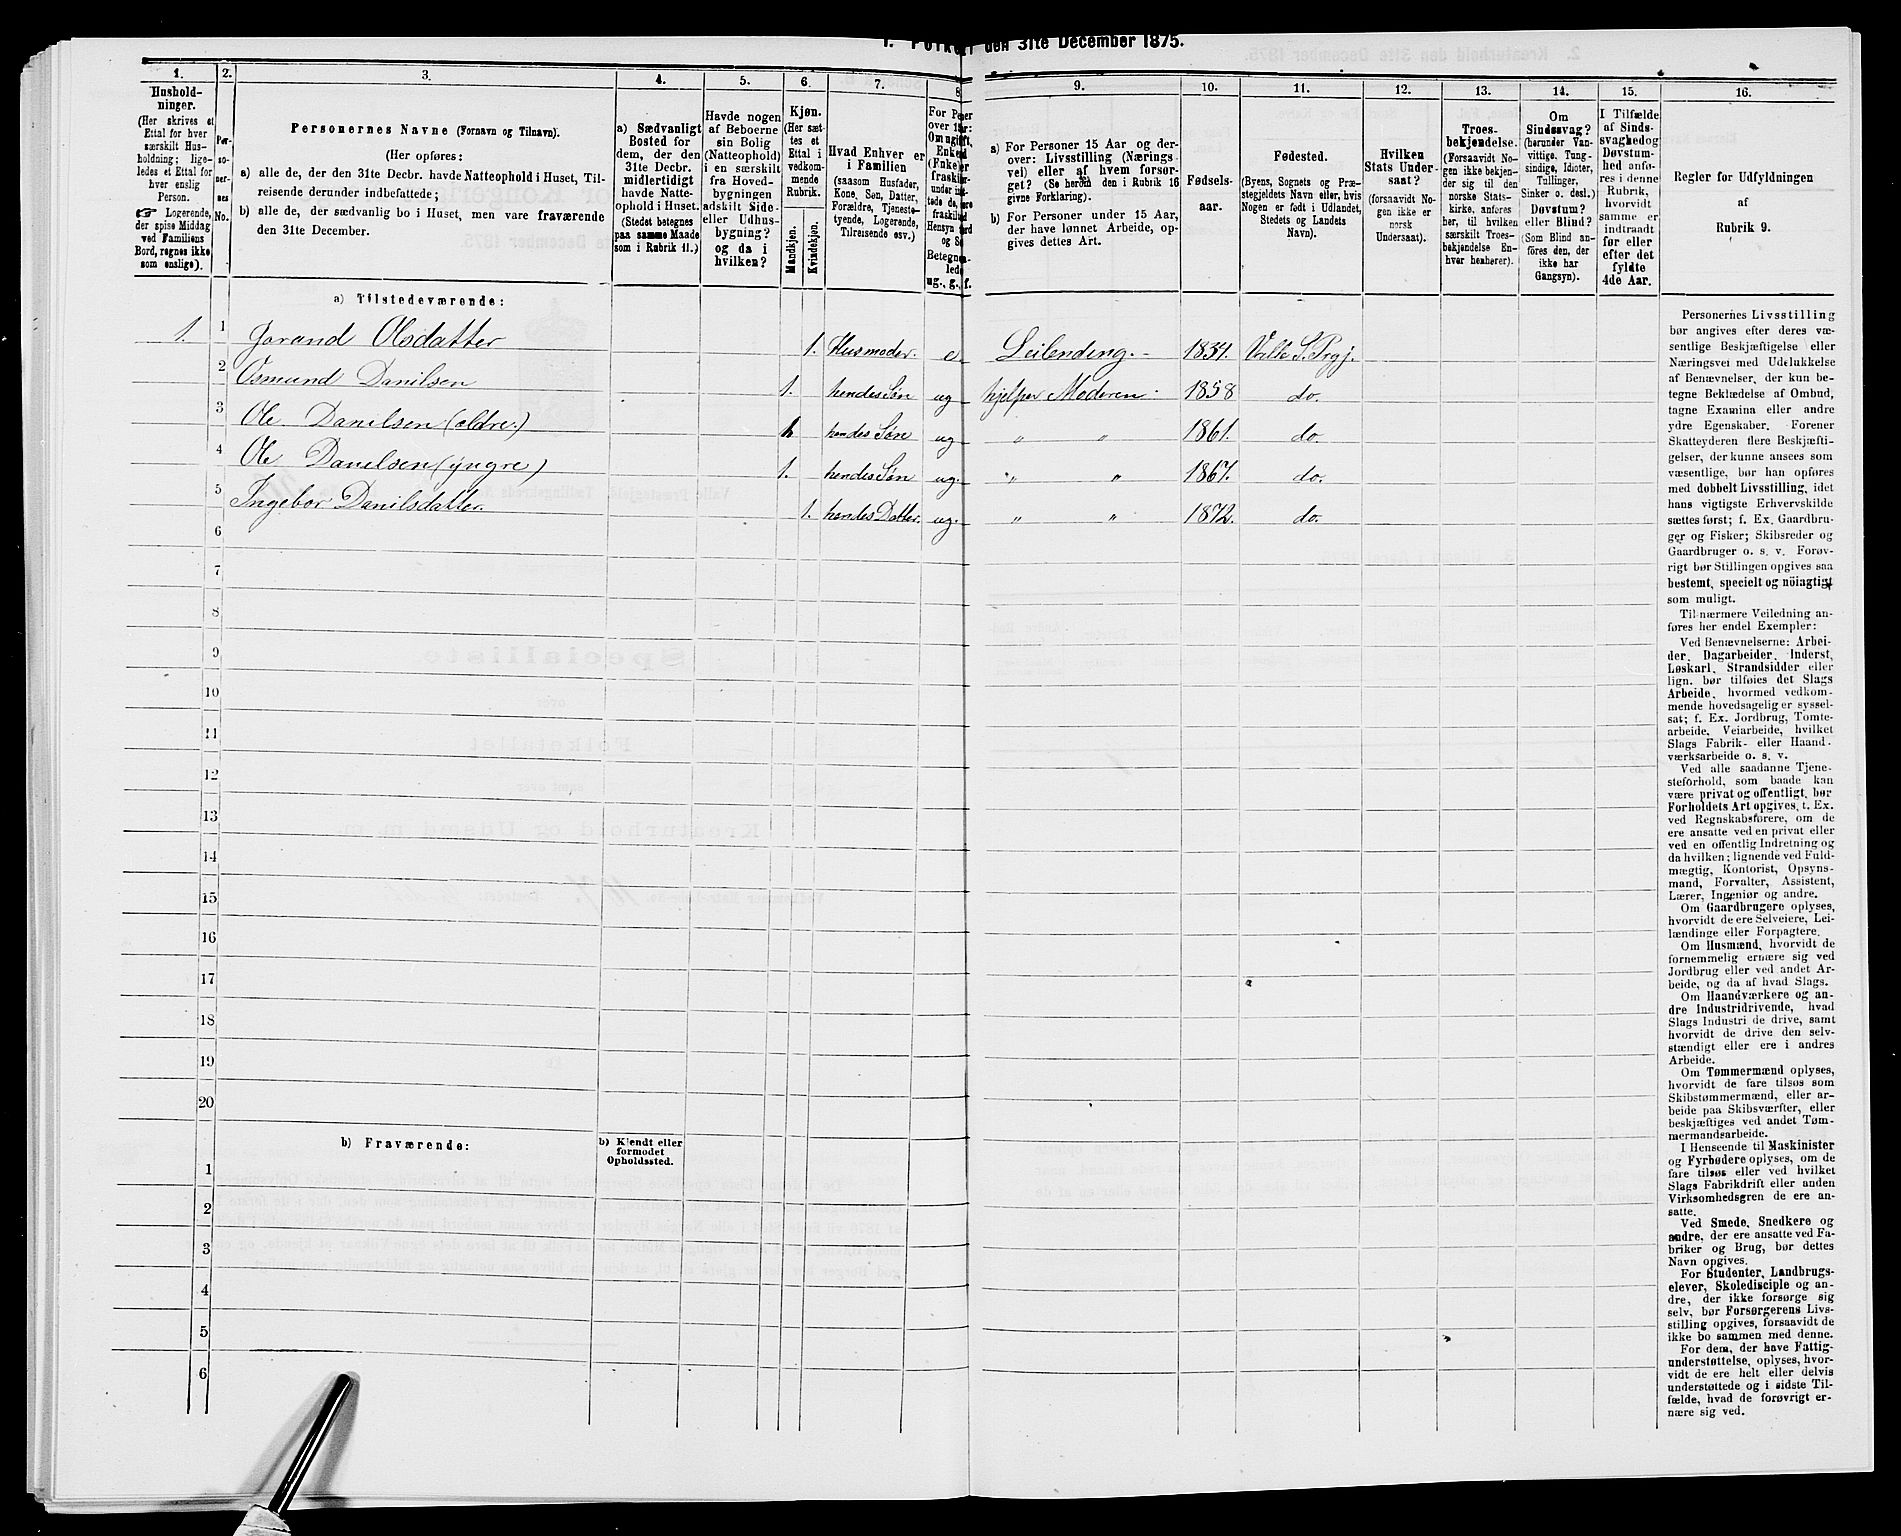 1. Folketal den 31te December 1875.
1. 2. 3. 4. 5. 6. 7. 8. 9. 10. 11. 12. 13. 14. 15. 16.
Hushold-
ninger.
(Her skrives et
Ettal for hver
særskilt Hus-
holdning; lige-
ledes et Ettal for
hver enslig
Person.
☞ Logerende,
der spise Middag
ved Familiens
Bord, regnes ikke
som enslige).
Per-
so-
ner-
nes
No.
Personernes Navne (Fornavn og Tilnavn).
(Her opføres:
a) alle de, der den 31te Decbr. havde Natteophold i Huset, Til-
reisende derunder indbefattede;
b) alle de, der sædvanlig bo i Huset, men vare fraværende
den 31te December.
a) Sædvanligt
Bosted for
dem, der den
31te Decbr.
midlertidigt
havde Natte-
ophold i Huset.
(Stedet betegnes
paa samme Maade
som i Rubrik 11.)
Havde nogen
af Beboerne
sin Bolig
(Natteophold)
i en særskilt
fra Hoved-
bygningen
adskilt Side-
eller Udhus-
bygning?
og da i
hvilken?
Kjøn.
(Her sæt-
tes et
Ettal i
vedkom-
mende
Rubrik.
Mandkjøn.
Kvindekjøn.
Hvad Enhver er
i Familien
(saasom Husfader,
Kone, Søn, Datter,
Forældre, Tjeneste-
tyende, Logerende,
Tilreisende osv.)
a) For Personer 15 Aar og der-
over: Livsstilling (Nærings-
vei) eller af hvem forsør-
get? (Se herom den i Rubrik 16
givne Forklaring).
b) For Personer under 15 Aar,
der have lønnet Arbeide, op-
gives dettes Art.
Fødsels-
aar.
Fødested.
(Byens, Sognets og Præ-
stegjeldets Navn eller, hvis
Nogen er født i Udlandet,
Stedets og Landets
Navn).
Hvilken
Stats Under-
saat?
(Forsaavidt No-
gen ikke er
norsk
Undersaat).
Troes-
bekjendelse.
(Forsaavidt No-
gen ikke bekjen-
der sig til den
norske Stats-
kirke, anføres
her, til hvilken
særskilt Troes-
bekjendelse En-
hver henhører).
Om
Sindssvag?
(herunder Van-
vittige, Tung-
sindige, Idioter,
Tullinger,
Sinker o. desl.)
Døvstum?
eller Blind?
(Som Blind an-
føres den, der
ikke har
Gangsyn).
I Tilfælde
af Sinds-
svaghed og
Døvstum-
hed anfø-
res i denne
Rubrik,
hvorvidt
samme er
indtraadt
før eller
efter det
fyldte
4de Aar.
Regler for Udfyldningen
af
Rubrik 9.
a) Tilstedeværende:
1. 1 Jorand Olsdatter 1. Husmoder. e. Leilending. 1834. Valle S. Prgj.
2 Osmund Danilsen 1. hendes Søn ug hjelper Moderen 1858 do.
3 Ole Danilsen (ældre.) hendes Søn ug " " 1861. do.
4 Ole Danilsen (yngre) 1. hendes Søn ug. " " 1867. do.
5 Ingebor Danilsdatter. 1. hendes Datter. ug. " " 1872. do.
6
7
8
9
10
11
12
13
14
15
16
17
18
19
20
b) Fraværende:
b) Kjendt eller
formodet
Opholdssted.
1
2
3
4
5
6
Personernes Livsstilling
bør angives efter deres væ-
sentlige Beskjæftigelse eller
Næringsvei med Udelukkelse
af Benævnelser, der kun be-
tegne Beklædelse af Ombud,
tagne Examina eller andre
ydre Egenskaber. Forener
Skatteyderen flere Beskjæfti-
gelser, der kunne ansees som
væsentlige, bør han opføres
med dobbelt Livsstilling, idet
hans vigtigste Erhvervskilde
sættes først; f. Ex. Gaardbru-
ger og Fisker; Skibsreder og
Gaardbruger o. s. v. Forøv-
rigt bør Stillingen opgives saa
bestemt, specielt og nöiagtigt
som muligt.
Til nærmere Veiledning an-
føres her endel Exempler:
Ved Benævnelserne: Arbei-
der, Dagarbeider, Inderst,
Løskarl, Strandsidder eller
lign. bør tilføies det Slags
Arbeide, hvormed vedkom-
mende hovedsagelig er syssel-
sat; f. Ex. Jordbrug, Tomte-
arbeide, Veiarbeide, hvilket
Slags Fabrik- eller Haand-
værksarbeide o. s. v.
Ved alle saadanne Tjene-
steforhold, som baade kan
være privat og offentligt, bør
Forholdets Art opgives, t. Ex.
ved Regnskabsførere, om de
ere ansatte ved en privat eller
ved en offentlig Indretning og
da hvilken; lignende ved Fuld-
mægtig, Kontorist, Opsyns-
mand, Forvalter, Assistent,
Lærer, Ingeniør og andre.
Om Gaardbrugere oplyses,
hvorvidt de ere Selveiere, Lei-
lændinge eller Forpagtere.
Om Husmænd, hvorvidt de
fornemmelig ernære sig ved
Jordbrug eller ved andet Ar-
beide, og da af hvad Slags.
Om Haandværkere og an-
dre Industridrivende, hvad
Slags Industri de drive, samt
hvorvidt de drive den selv-
stændigt eller ere i andres
Arbeide.
Om Tømmermænd oplyses,
hvorvidt de fare tilsøs som
Skibstømmermænd, eller ar-
beide paa Skibsværfter, eller
beskjæftiges ved andet Tøm-
mermandsarbeide.
I Henseende til Maskinister
og Fyrbødere oplyses, om de
fare tilsøs eller ved hvilket
Slags Fabrikdrift eller anden
Virksomhedsgren de ere an-
satte.
Ved Smede, Snedkere og
andre, der ere ansatte ved Fa-
briker og Brug, bør dettes
Navn opgives.
For Studenter, Landbrugs-
elever, Skoledisciple og an-
dre, der ikke forsørge sig
selv, bør Forsørgerens Livs-
stilling opgives, forsaavidt de
ikke bo sammen med denne.
For dem, der have Fattig-
understøttelse, oplyses, hvor-
vidt de ere helt eller delvis
understøttede og i sidste Til-
fælde, hvad de forøvrigt er-
nære sig ved.